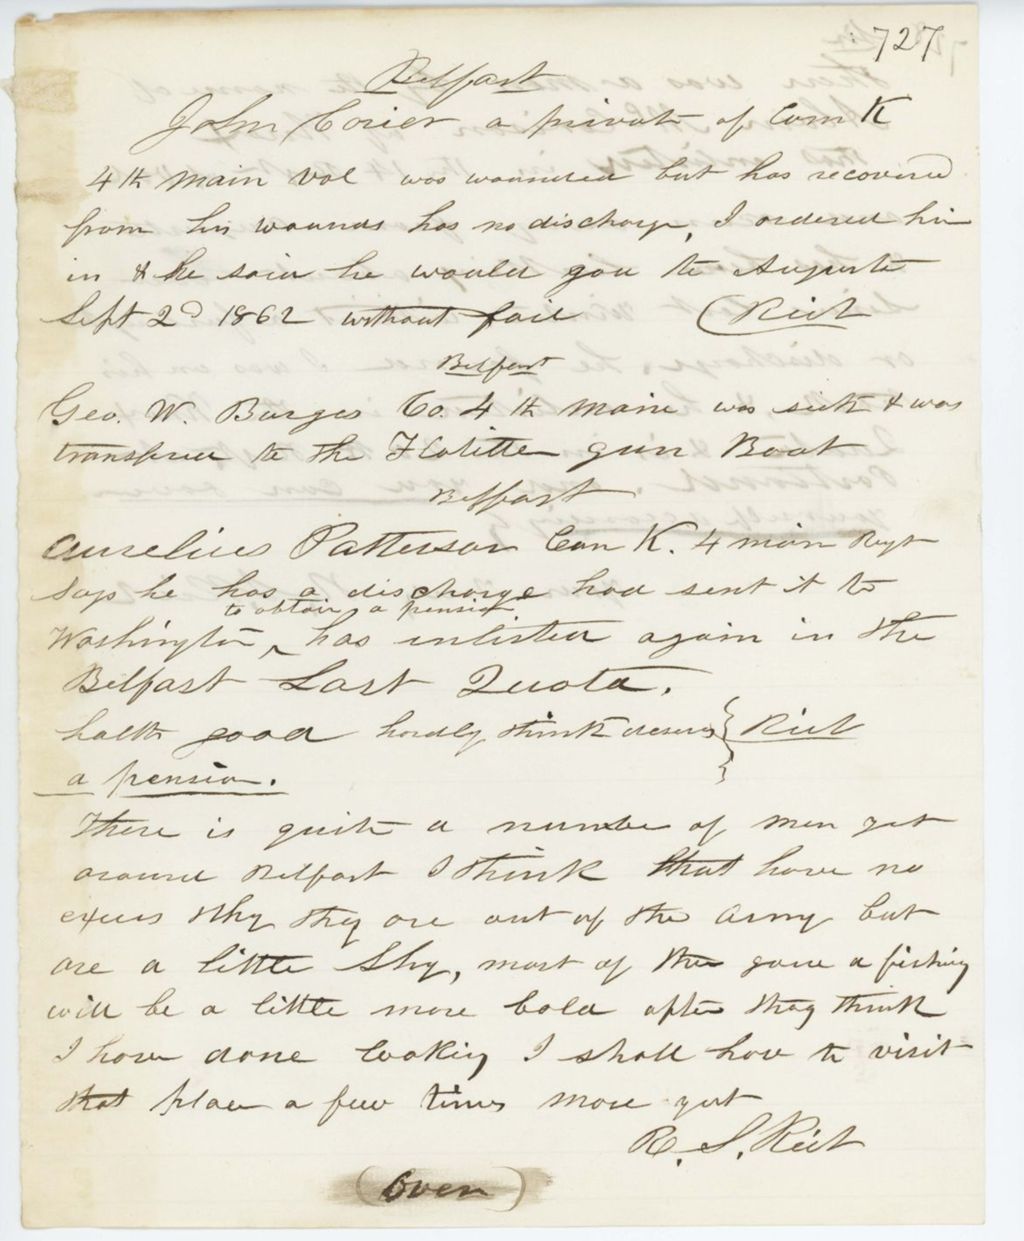 727
Belfast
John Corier a private of Com K
4th Main Vol was wounded but has recovered
from his wounds has no discharge, I ordered him
in & he said he would gou to Augusta
Sept 2d 1862 without fail (Rich
Belfast
Geo. W. Burges Co. 4th Maine was sick & was
transfered to the Flotitte gun Boat
Belfast
Aurelius Patterson Com K. 4 main Regt
Says he has a discharge had sent it to
to obtain a pension
Washington, ^ has enlisted again in the
Belfast Last Quota.
halth good hardly think deserves } Rich
a pension.
There is quite a number of men yet
around Belfast I think that have no
excus why thy are out of the army but
are a little Shy, most of them gone a fishing
will be a little more bold after thay think
I have done looking I shall have to visit
that place a few times more yet
R. S. Rich
(Over)